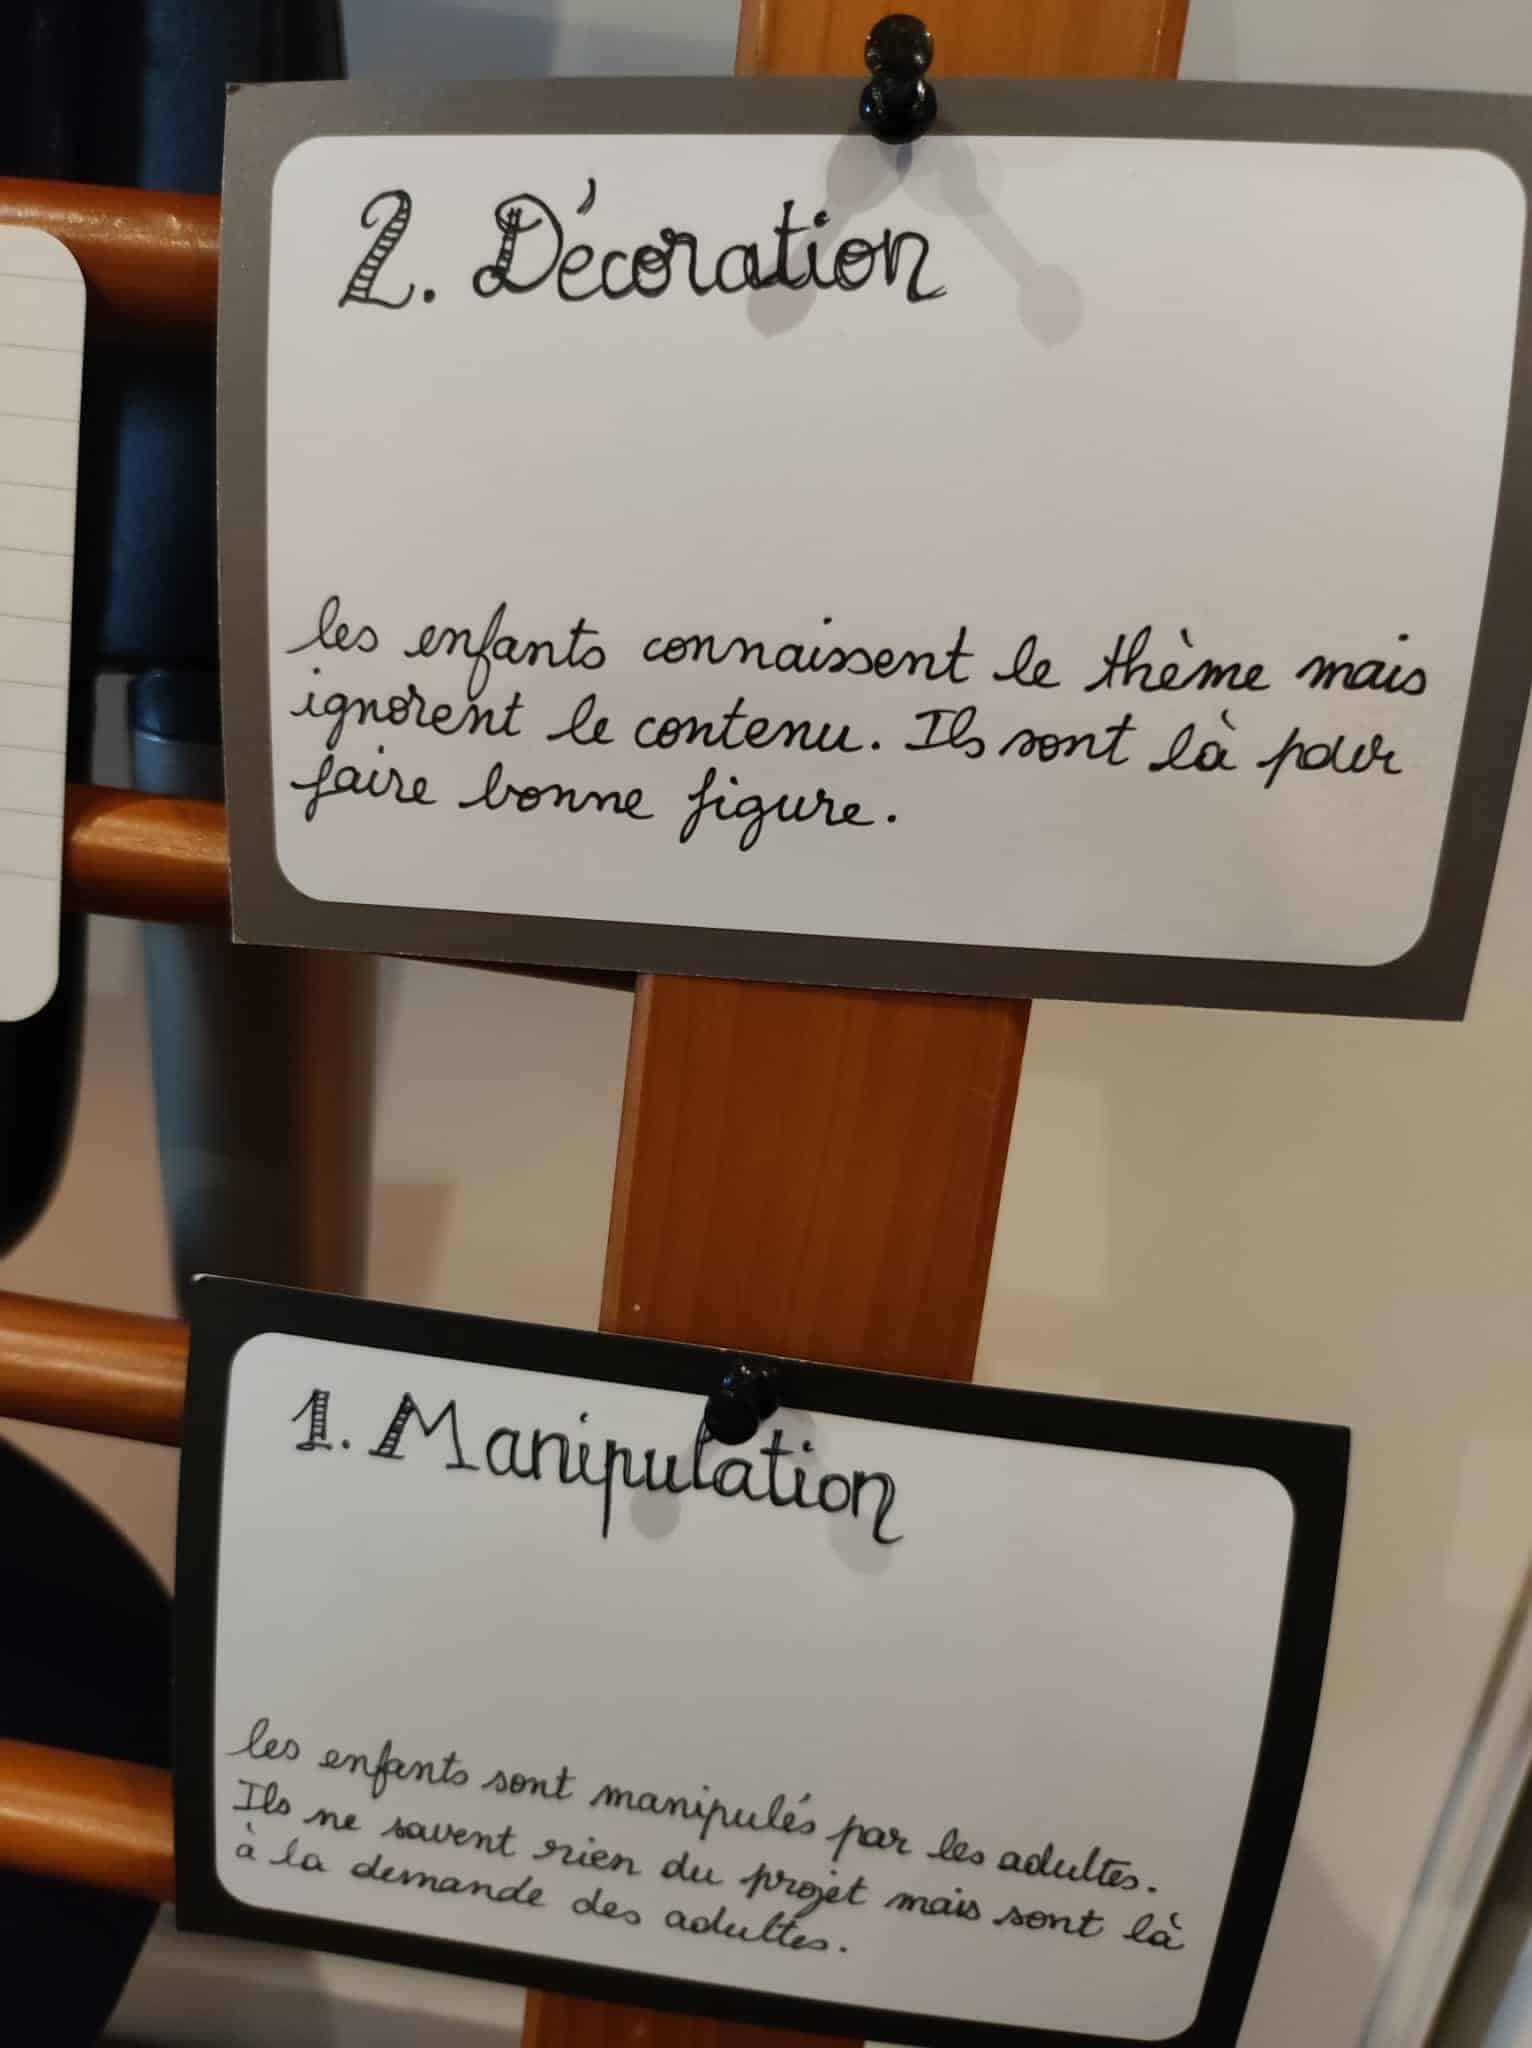 2. Décoration
les enfants connaissent le thème mais
ignorent le contenu. Ils sont là pour
faire bonne figure.
1. Manipulation
les enfants sont manipulés par les adultes.
Ils ne savent rien du projet mais sont là
à la demande des adultes.